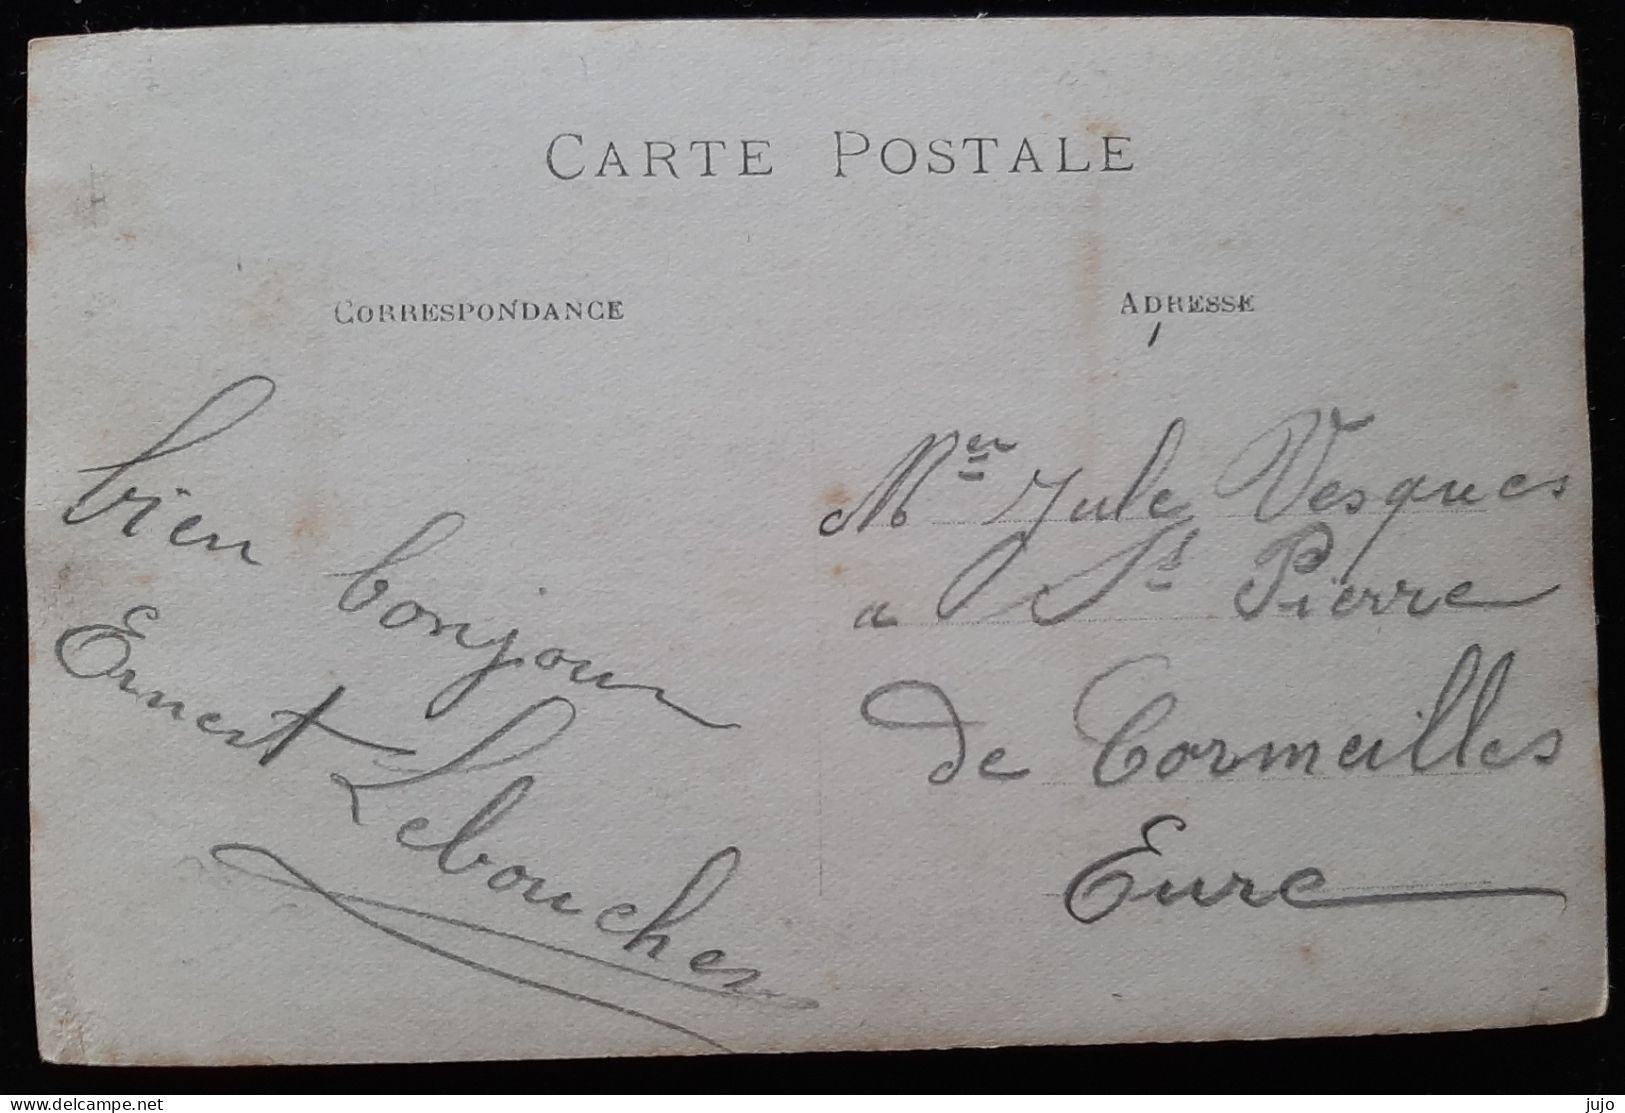 CARTE POSTALE
CORRESPONDANCE
ADRESSE
bien bonjour
Ernest Leboucher
Mer Jule Vesques
a St Pierre
de Cormeilles
Eure
www.delcampe.net
jujo